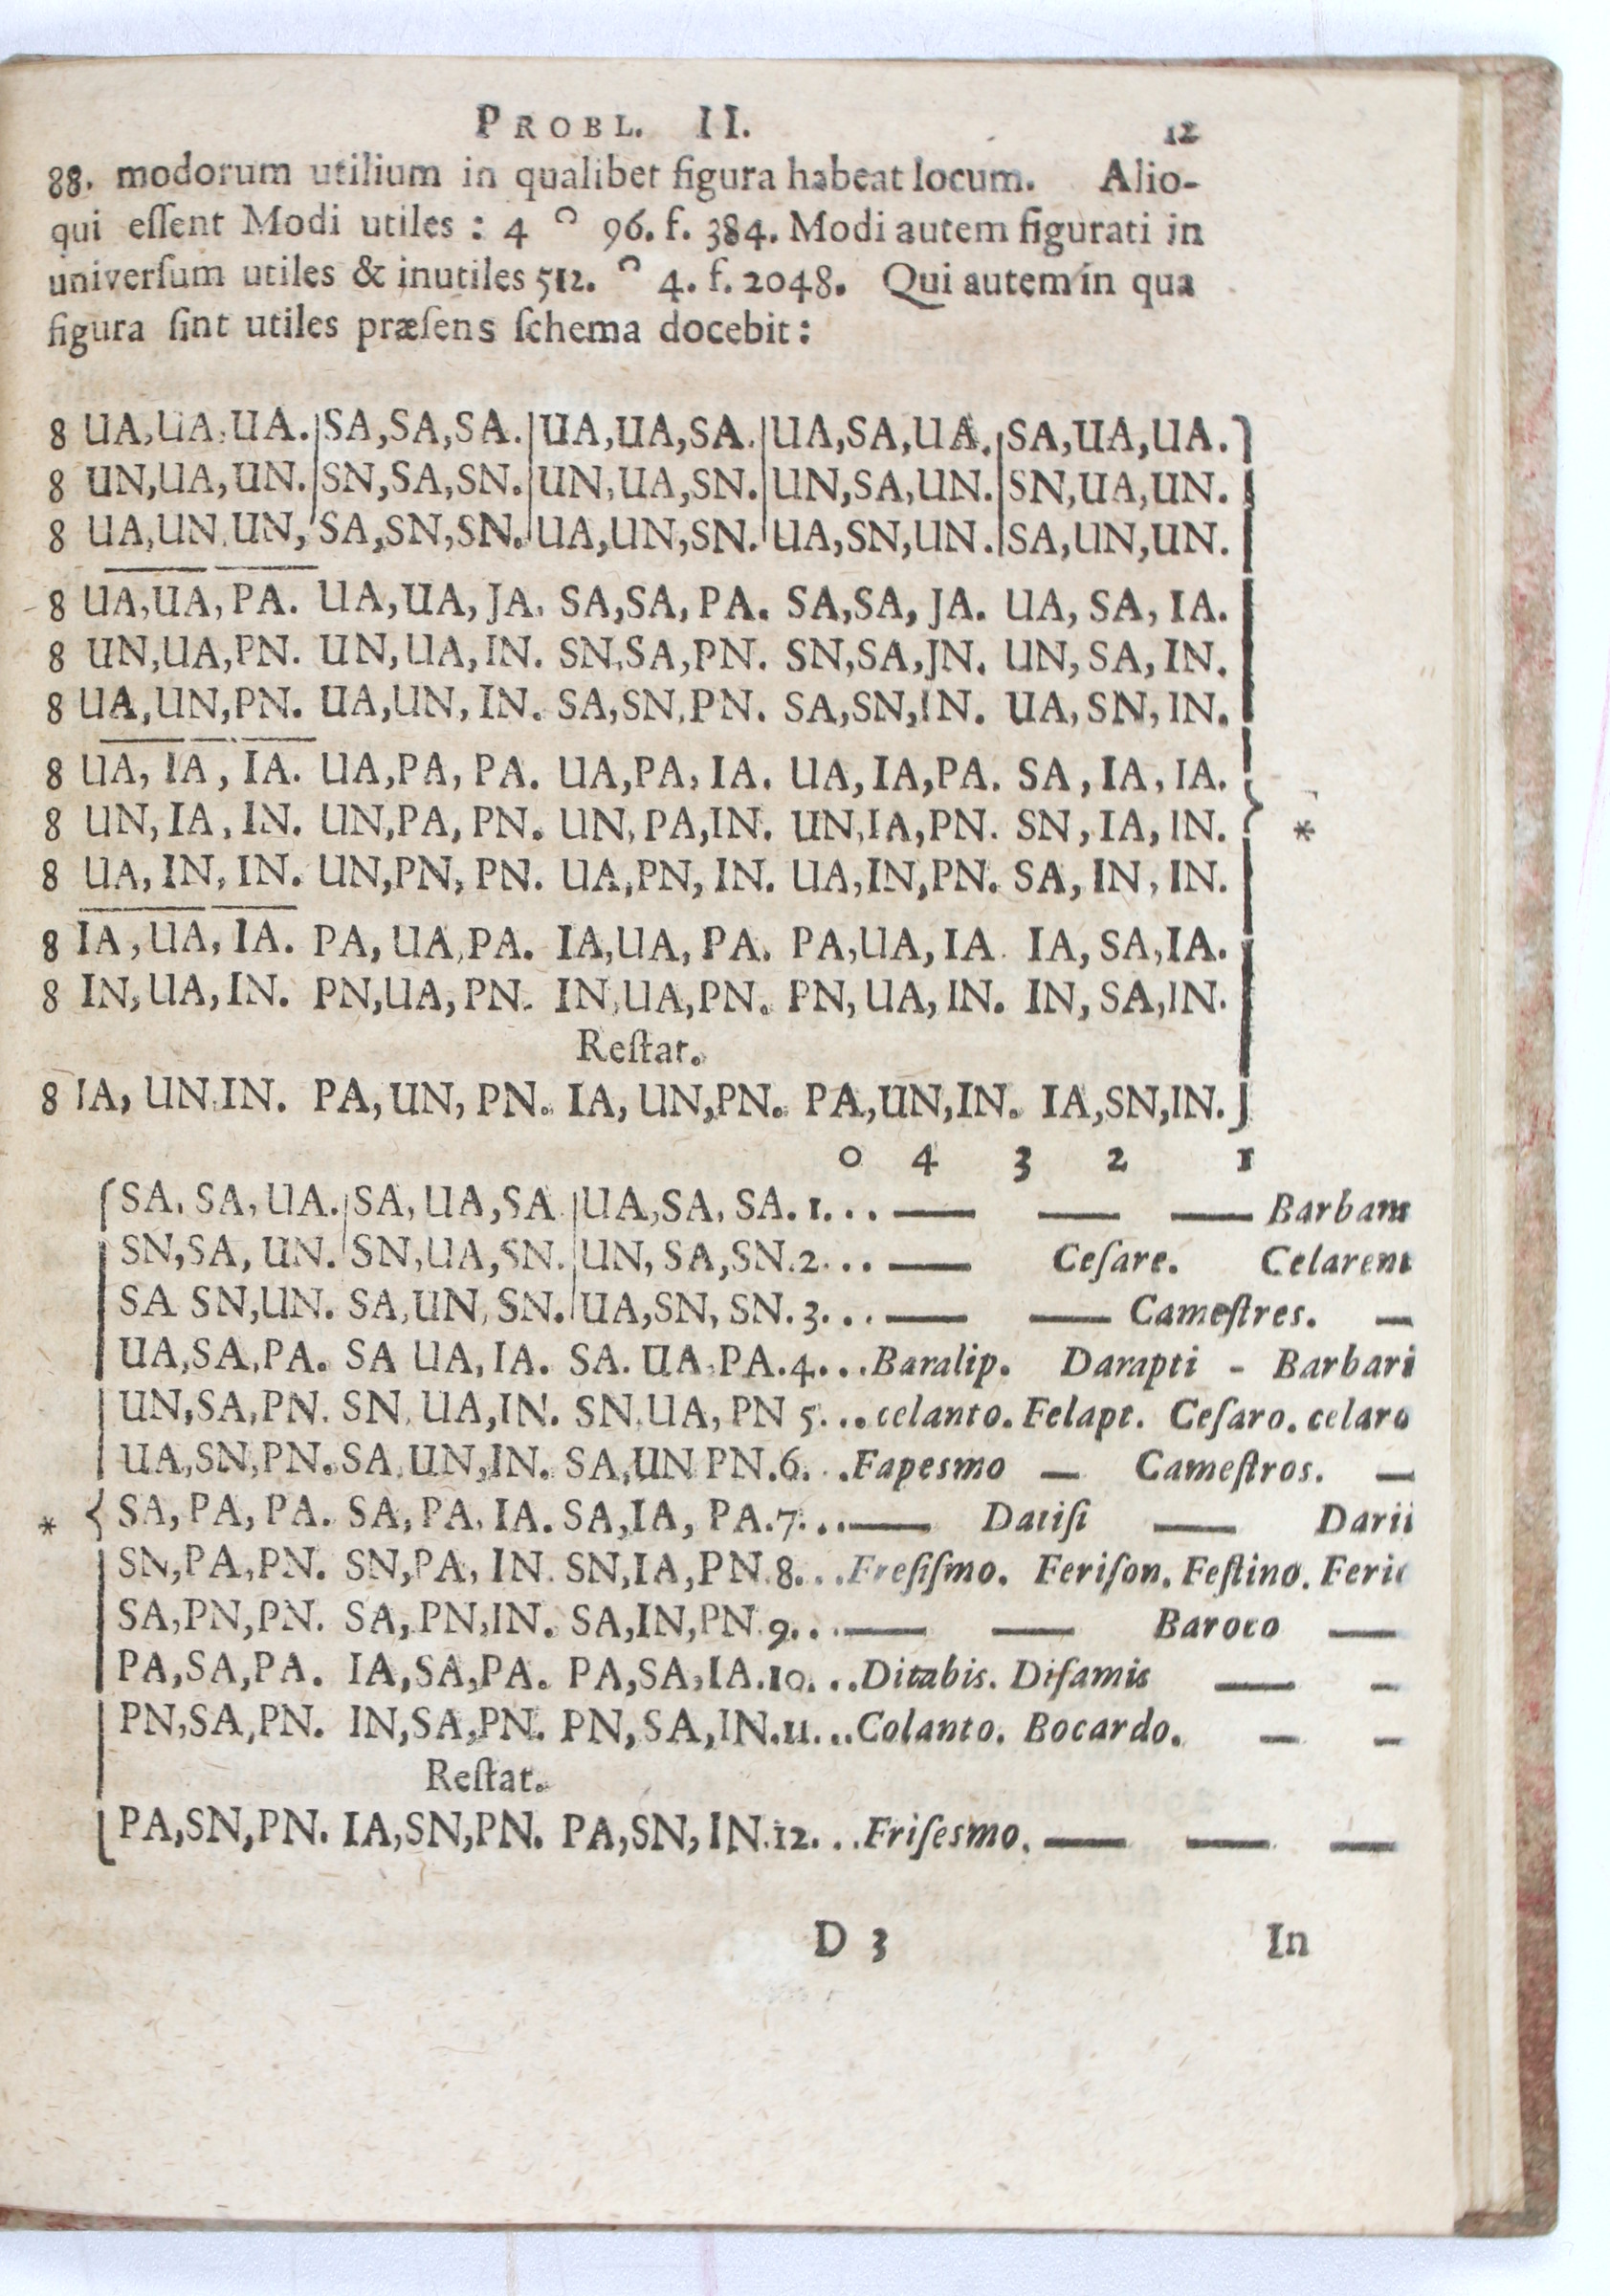 PROBL. II. 12
88. modorum utilium in qualibet figura habeat locum. Alio-
qui eſſent Modi utiles : 4 ᴖ 96. ſ. 384. Modi autem figurati in
univerſum utiles & inutiles 512. ᴖ 4. ſ. 2048. Qui autem in qua
figura ſint utiles præſens ſchema docebit:
8 UA,UA,UA.|SA,SA,SA.|UA,UA,SA.|UA,SA,UA.|SA,UA,UA.
8 UN,UA,UN.|SN,SA,SN.|UN,UA,SN.|UN,SA,UN.|SN,UA,UN.
8 UA,UN,UN,|SA,SN,SN.|UA,UN,SN.|UA,SN,UN.|SA,UN,UN.
8 UA,UA,PA. UA,UA,JA. SA,SA,PA. SA,SA,JA. UA, SA, IA.
8 UN,UA,PN. UN,UA,IN. SN,SA,PN. SN,SA,JN. UN, SA, IN.
8 UA,UN,PN. UA,UN,IN. SA,SN,PN. SA,SN,IN. UA, SN, IN.
8 UA, IA, IA. UA,PA, PA. UA,PA, IA. UA, IA,PA. SA, IA, IA.
8 UN, IA, IN. UN,PA, PN. UN, PA,IN. UN,IA,PN. SN, IA, IN. *
8 UA, IN, IN. UN,PN, PN. UA,PN, IN. UA,IN,PN. SA, IN, IN.
8 IA, UA, IA. PA, UA,PA. IA,UA, PA. PA,UA, IA. IA, SA,IA.
8 IN, UA, IN. PN,UA, PN. IN,UA,PN. PN, UA, IN. IN, SA,IN.
Reſtat.
8 IA, UN,IN. PA, UN, PN. IA, UN,PN. PA,UN,IN. IA,SN,IN.
0 4 3 2 1
SA, SA, UA.|SA, UA,SA|UA,SA, SA. 1... — — — Barbara
SN,SA, UN.|SN,UA,SN.|UN, SA,SN.2... — Ceſare. Celarent
SA SN,UN. SA,UN, SN.|UA,SN, SN. 3... — — Cameſtres. —
UA,SA,PA. SA UA, IA. SA. UA,PA.4...Baralip. Darapti - Barbari
UN,SA,PN. SN, UA,IN. SN,UA, PN 5...celanto. Felapt. Ceſaro. celaro
UA,SN,PN. SA,UN,IN. SA,UN PN.6. . .Fapesmo — Cameſtros. —
* SA, PA, PA. SA, PA, IA. SA,IA, PA.7...— Datiſi — Darii
SN,PA,PN. SN,PA, IN. SN,IA,PN.8. . .Freſiſmo. Feriſon. Feſtino. Ferio
SA,PN,PN. SA, PN,IN. SA,IN,PN.9. . .— — Baroco —
PA,SA,PA. IA,SA,PA. PA,SA,IA.10. ..Ditabis. Diſamis — -
PN,SA,PN. IN,SA,PN. PN, SA,IN.11...Colanto. Bocardo. — -
Reſtat.
PA,SN,PN. IA,SN,PN. PA,SN, IN.12. . .Friſesmo. — — —
D 3 In